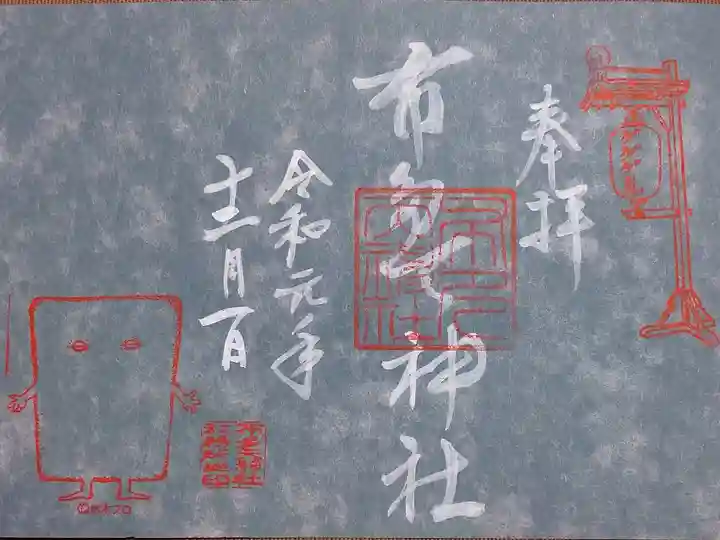 奉拝
布多天神社
令和元年
十二月一日
©水木プロ